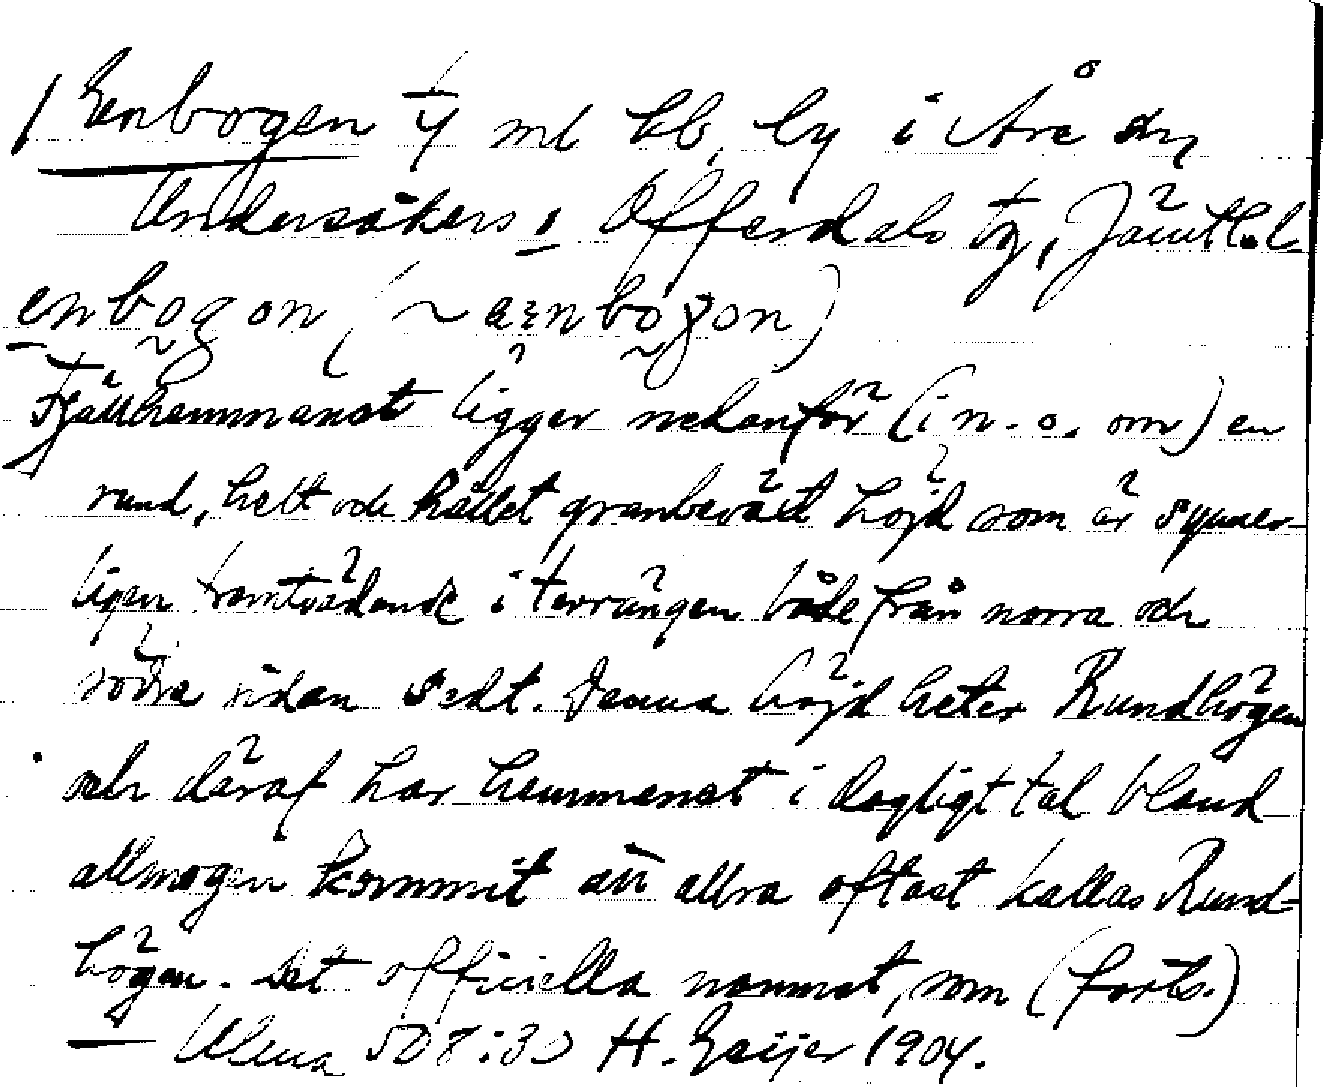 Enbogen 1/4 ml hb, by i Åre sn,
Undersåkers o. Offerdals tg, Jämtl. l
enbogon (~ aenbogon)
Fjällhemmanet ligger nedanför (i n. o. om) en
rund, helt ock hållet granbeväxt höjd som är synner-
ligen framträdande i terrängen både från norra ock
södra sidan sedt. Denna höjd heter Rundhögen
ock däraf har hemmanet i dagligt tal bland
allmogen kommit att allra oftast kallas Rund-
högen. Det officiella namnet, som (forts.)
Ulma 508:30 H. Geijer 1904.